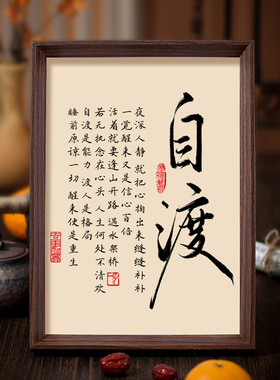 自渡
夜深人静 就把心掏出来缝缝补补
一觉醒来又是信心百倍
活着就要逢山开路遇水架桥
若无执念在心头 人生何处不清欢
自渡是能力 渡人是格局
睡前原谅一切 醒来便是重生